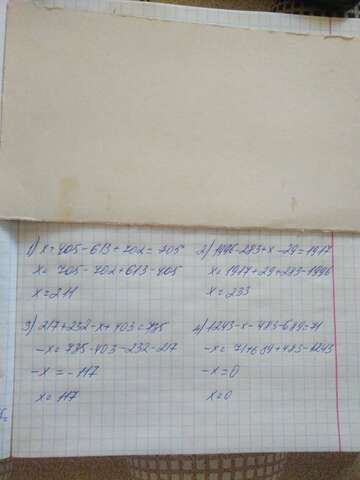 1) x+405-613+702=705
x=705-702+613-405
x=211
2) 1996-283+x-29=1917
x=1917+29+283-1996
x=233
3) 217+232-x+403=735
-x=735-403-232-217
-x=-117
x=117
4) 1243-x-483-689=71
-x=71+689+483-1243
-x=0
x=0